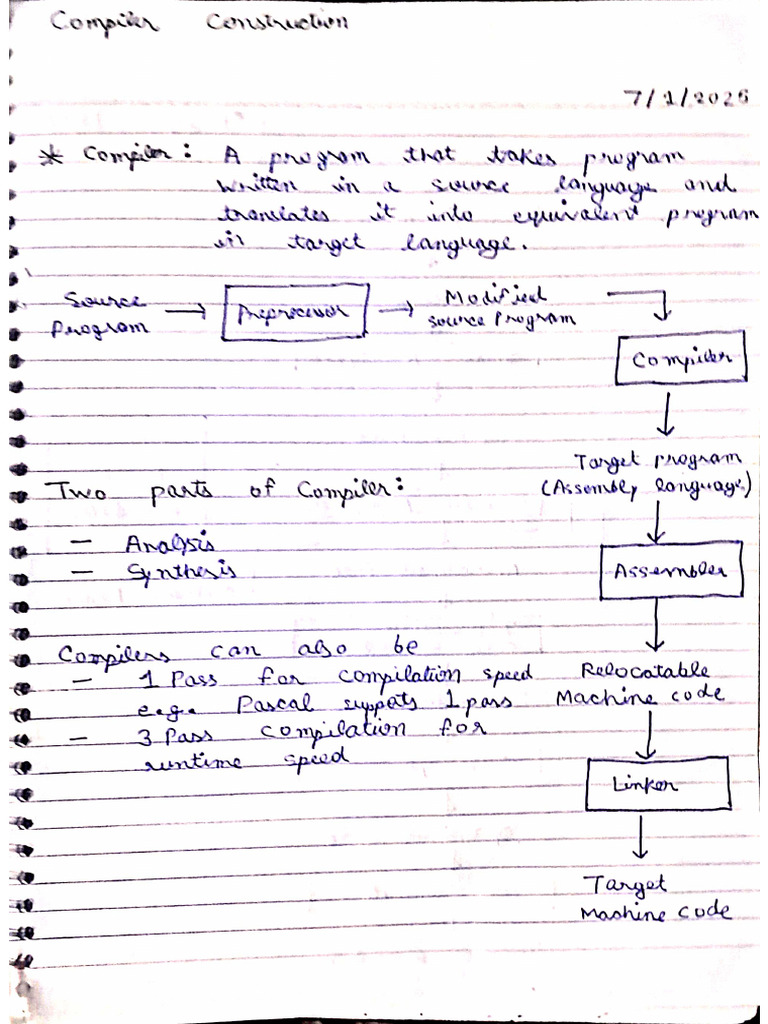 Compiler Construction
7/1/2025
* Compiler: A program that takes program
written in a source language and
translates it into equivalent program
in target language.
Source
Program
Preprocessor
Modified
Source Program
Compiler
Target program
(Assembly language)
Two parts of Compiler:
- Analysis
- Synthesis
Assembler
Compilers can also be
- 1 Pass for compilation speed
e.g. Pascal supports 1 pass
- 3 Pass compilation for
runtime speed
Relocatable
Machine code
Linker
Target
Machine code